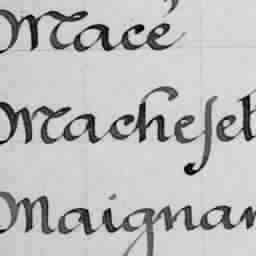 Macé
Machefel
Maignan